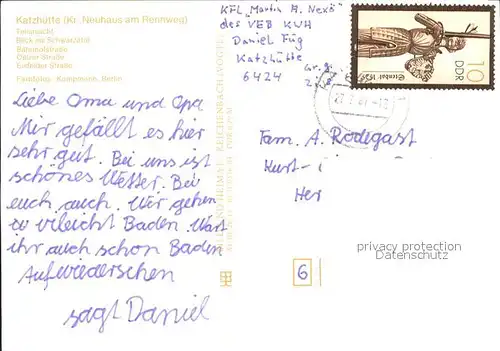 Katzhütte (Kr. Neuhaus am Rennweg)
Teilansicht
Blick ins Schwarzatal
Bahnhofstraße
Oelzer Straße
Eisfelder Straße
Farbfotos: Kampmann, Berlin
KFL „Martin A. Nexö"
des VEB KWH
Daniel Füg
Katzhütte
6424 Gr.
DDR
10
Liebe Oma und Opa
Mir gefällt es hier
sehr gut. Bei uns ist
schönes Wetter. Bei
euch auch. Wir gehen
vleicht Baden. Wart
ihr auch schon Baden
Aufwiederschen
sagt Daniel
BILD UND HEIMAT REICHENBACH (VOGTL)
Fam. A. Rodegast
Kurt-
Her
privacy protection
Datenschutz
6